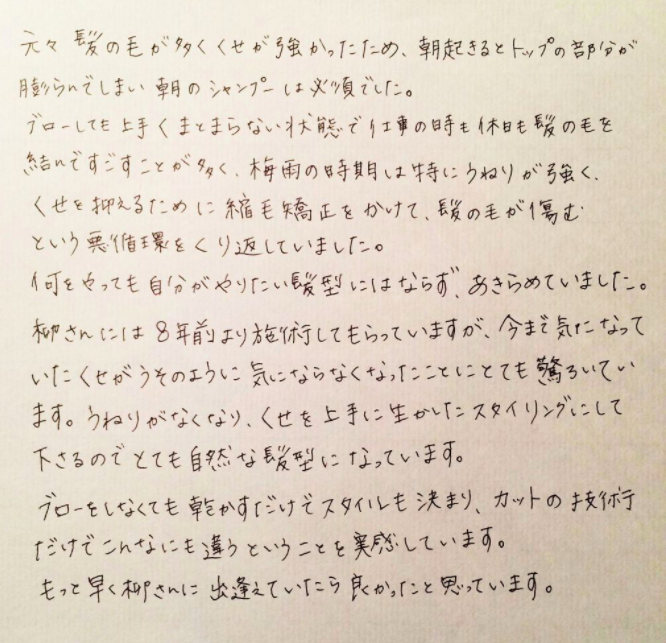 元々髪の毛が多くくせが強かったため、朝起きるとトップの部分が
膨らんでしまい朝のシャンプーは必須でした。
ブローしても上手くまとまらない状態で仕事の時も休日も髪の毛を
結んですごすことが多く、梅雨の時期は特にうねりが強く、
くせを抑えるために縮毛矯正をかけて、髪の毛が傷む
という悪循環をくり返していました。
何をやっても自分がやりたい髪型にはならず、あきらめていました。
柳さんには8年前より施術してもらっていますが、今まで気になって
いたくせがうそのように気にならなくなったことにとても驚ろいてい
ます。うねりがなくなり、くせを上手に生かしたスタイリングにして
下さるのでとても自然な髪型になっています。
ブローをしなくても乾かすだけでスタイルも決まり、カットの技術
だけでこんなにも違うということを実感しています。
もっと早く柳さんに出逢えていたら良かったと思っています。